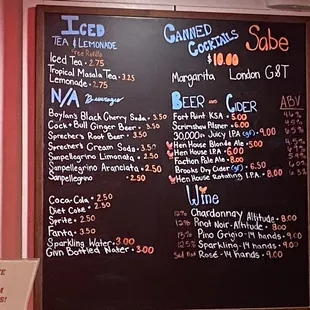 Iced
Tea & Lemonade
Free Refills
Iced Tea • 2.75
Tropical Masala Tea • 3.25
Lemonade • 2.75
N/A Beverages
Boylan's Black Cherry Soda • 3.50
Cock + Bull Ginger Beer • 3.50
Sprecher's Root Beer • 3.50
Sprecher's Cream Soda • 3.50
Sanpellegrino Limonata • 2.50
Sanpellegrino Aranciata • 2.50
Sanpellegrino • 2.50
Coca Cola • 2.50
Diet Coke • 2.50
Sprite • 2.50
Fanta • 3.50
Sparkling Water • 3.00
Bottled Water • 3.00
Canned
Cocktails
$10.00
Sabe
Margarita London G&T
Beer and Cider ABV
Fort Point KSA • 5.00
Scrimshaw Pilsner • 6.00
30,000 Juicy IPA (gf) • 9.00
Hen House Blonde Ale • 5.00
Hen House IPA • 6.00
Faction Pale Ale • 8.00
Brooks Dry Cider (gf) • 6.50
Hen House Rotating IPA • 8.00
Wine
Chardonnay, Altitude • 8.00
Pinot Noir • Altitude • 8.00
13% Pino Grigio • 14 hands • 9.00
12.5% Sparkling • 14 hands • 9.00
Rosé • 14 Hands • 9.00